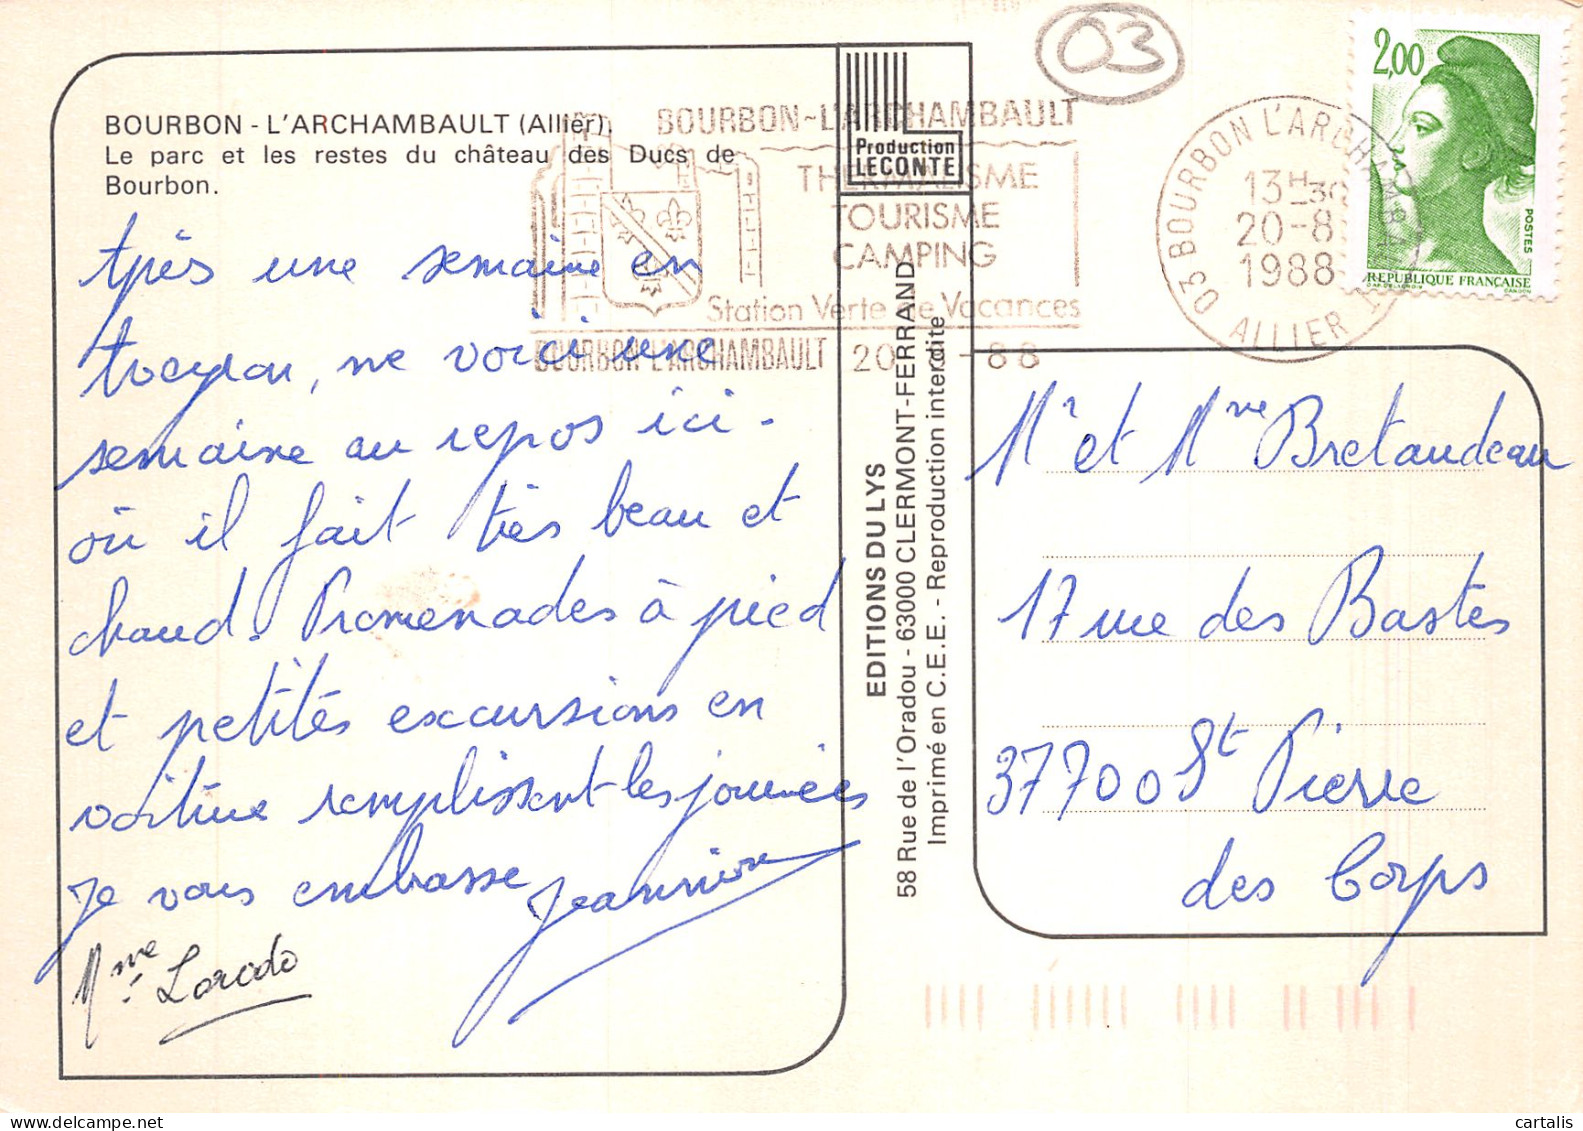 03
2,00
POSTES
REPUBLIQUE FRANÇAISE
BOURBON - L'ARCHAMBAULT (Allier).
Le parc et les restes du château des Ducs de
Bourbon.
BOURBON~L'ARCHAMBAULT
THERMALISME
TOURISME
CAMPING
Station Verte de Vacances
BOURBON L'ARCHAMBAULT 20 - 88
03 BOURBON L'ARCHAMBAULT
13H30
20-8
1988
ALLIER
Production
LECONTE
EDITIONS DU LYS
58 Rue de l'Oradou - 63000 CLERMONT-FERRAND
Imprimé en C.E.E. - Reproduction interdite
Après une semaine en
me voici une
semaine au repos ici -
où il fait très beau et
chaud. Promenades à pied
et petites excursions en
voiture remplissent les journées
Je vous embrasse Jeannine
Mme Lorado
Mr et Mme Bretaudeau
17 rue des Bastes
37700 St Pierre
des Corps
cartalis